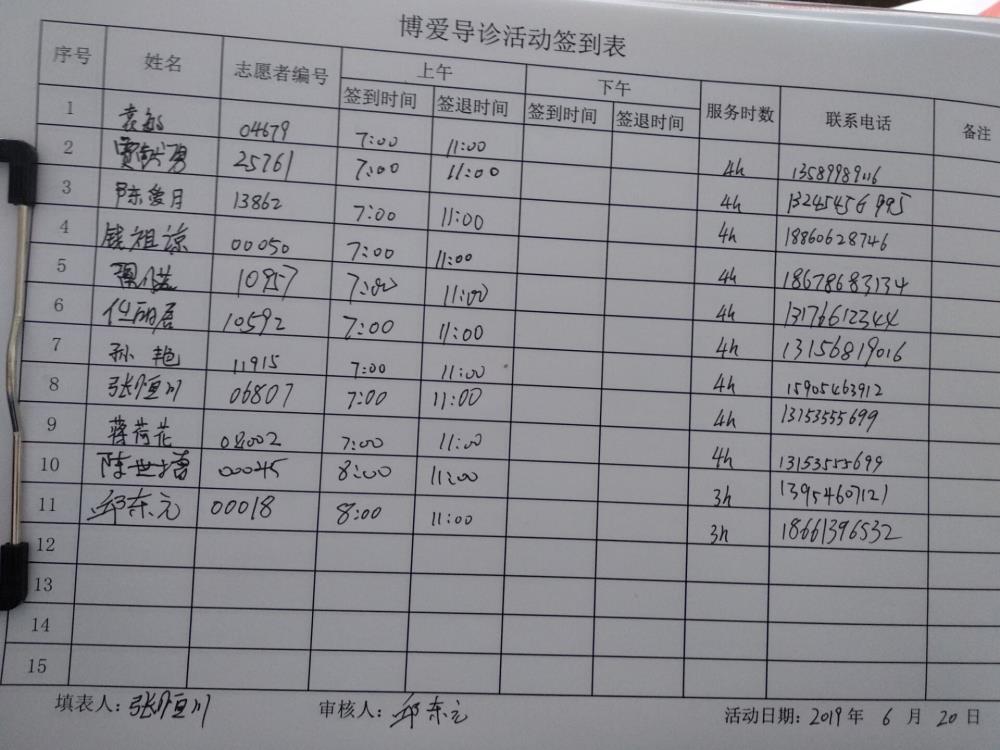 博爱导诊活动签到表
序号 姓名 志愿者编号 上午 下午 服务时数 联系电话 备注
签到时间 签退时间 签到时间 签退时间
1 袁敏 04679 7:00 11:00 4h 13589989116
2 贾献勇 25761 7:00 11:00 4h 13245456995
3 陈爱月 13862 7:00 11:00 4h 18860628746
4 钱祖谅 00050 7:00 11:00 4h 18678683134
5 10957 7:00 11:00 4h 13176612344
6 10592 7:00 11:00 4h 13156819016
7 孙艳 11915 7:00 11:00 4h 15905463912
8 张恒川 06807 7:00 11:00 4h 13153555699
9 蒋荷花 08002 7:00 11:00 4h 13153555699
10 00045 8:00 11:00 3h 13954607121
11 邱东元 00018 8:00 11:00 3h 18661396532
12
13
14
15
填表人:张恒川 审核人:邱东元 活动日期:2019年 6 月 20 日